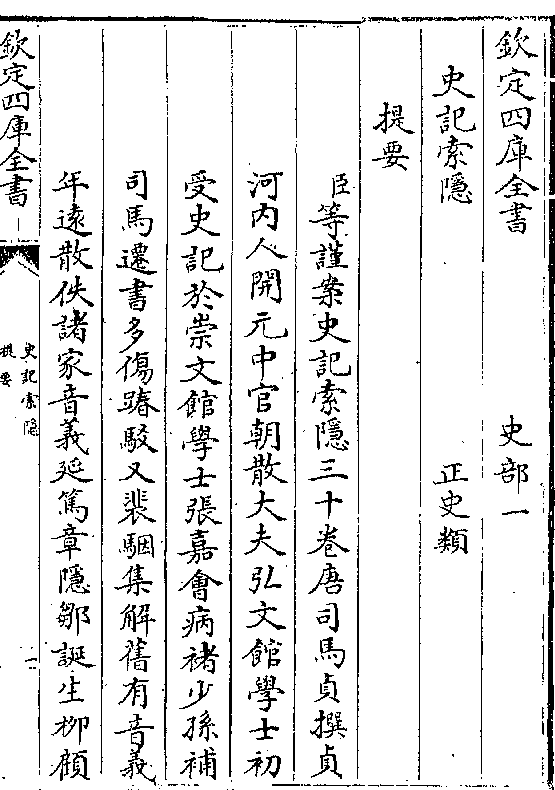 欽定四庫全書　史部一
史記索隱　正史類
提要
臣等謹案史記索隱三十卷唐司馬貞撰貞
河内人開元中官朝散大夫弘文館學士初
受史記於崇文館學士張嘉會病褚少孫補
司馬遷書多傷踳駁又裴駰集解舊有音義
年遠散佚諸家音義延篤章隱鄒誕生柳顧
欽定四庫全書
史記索隱
提要
一